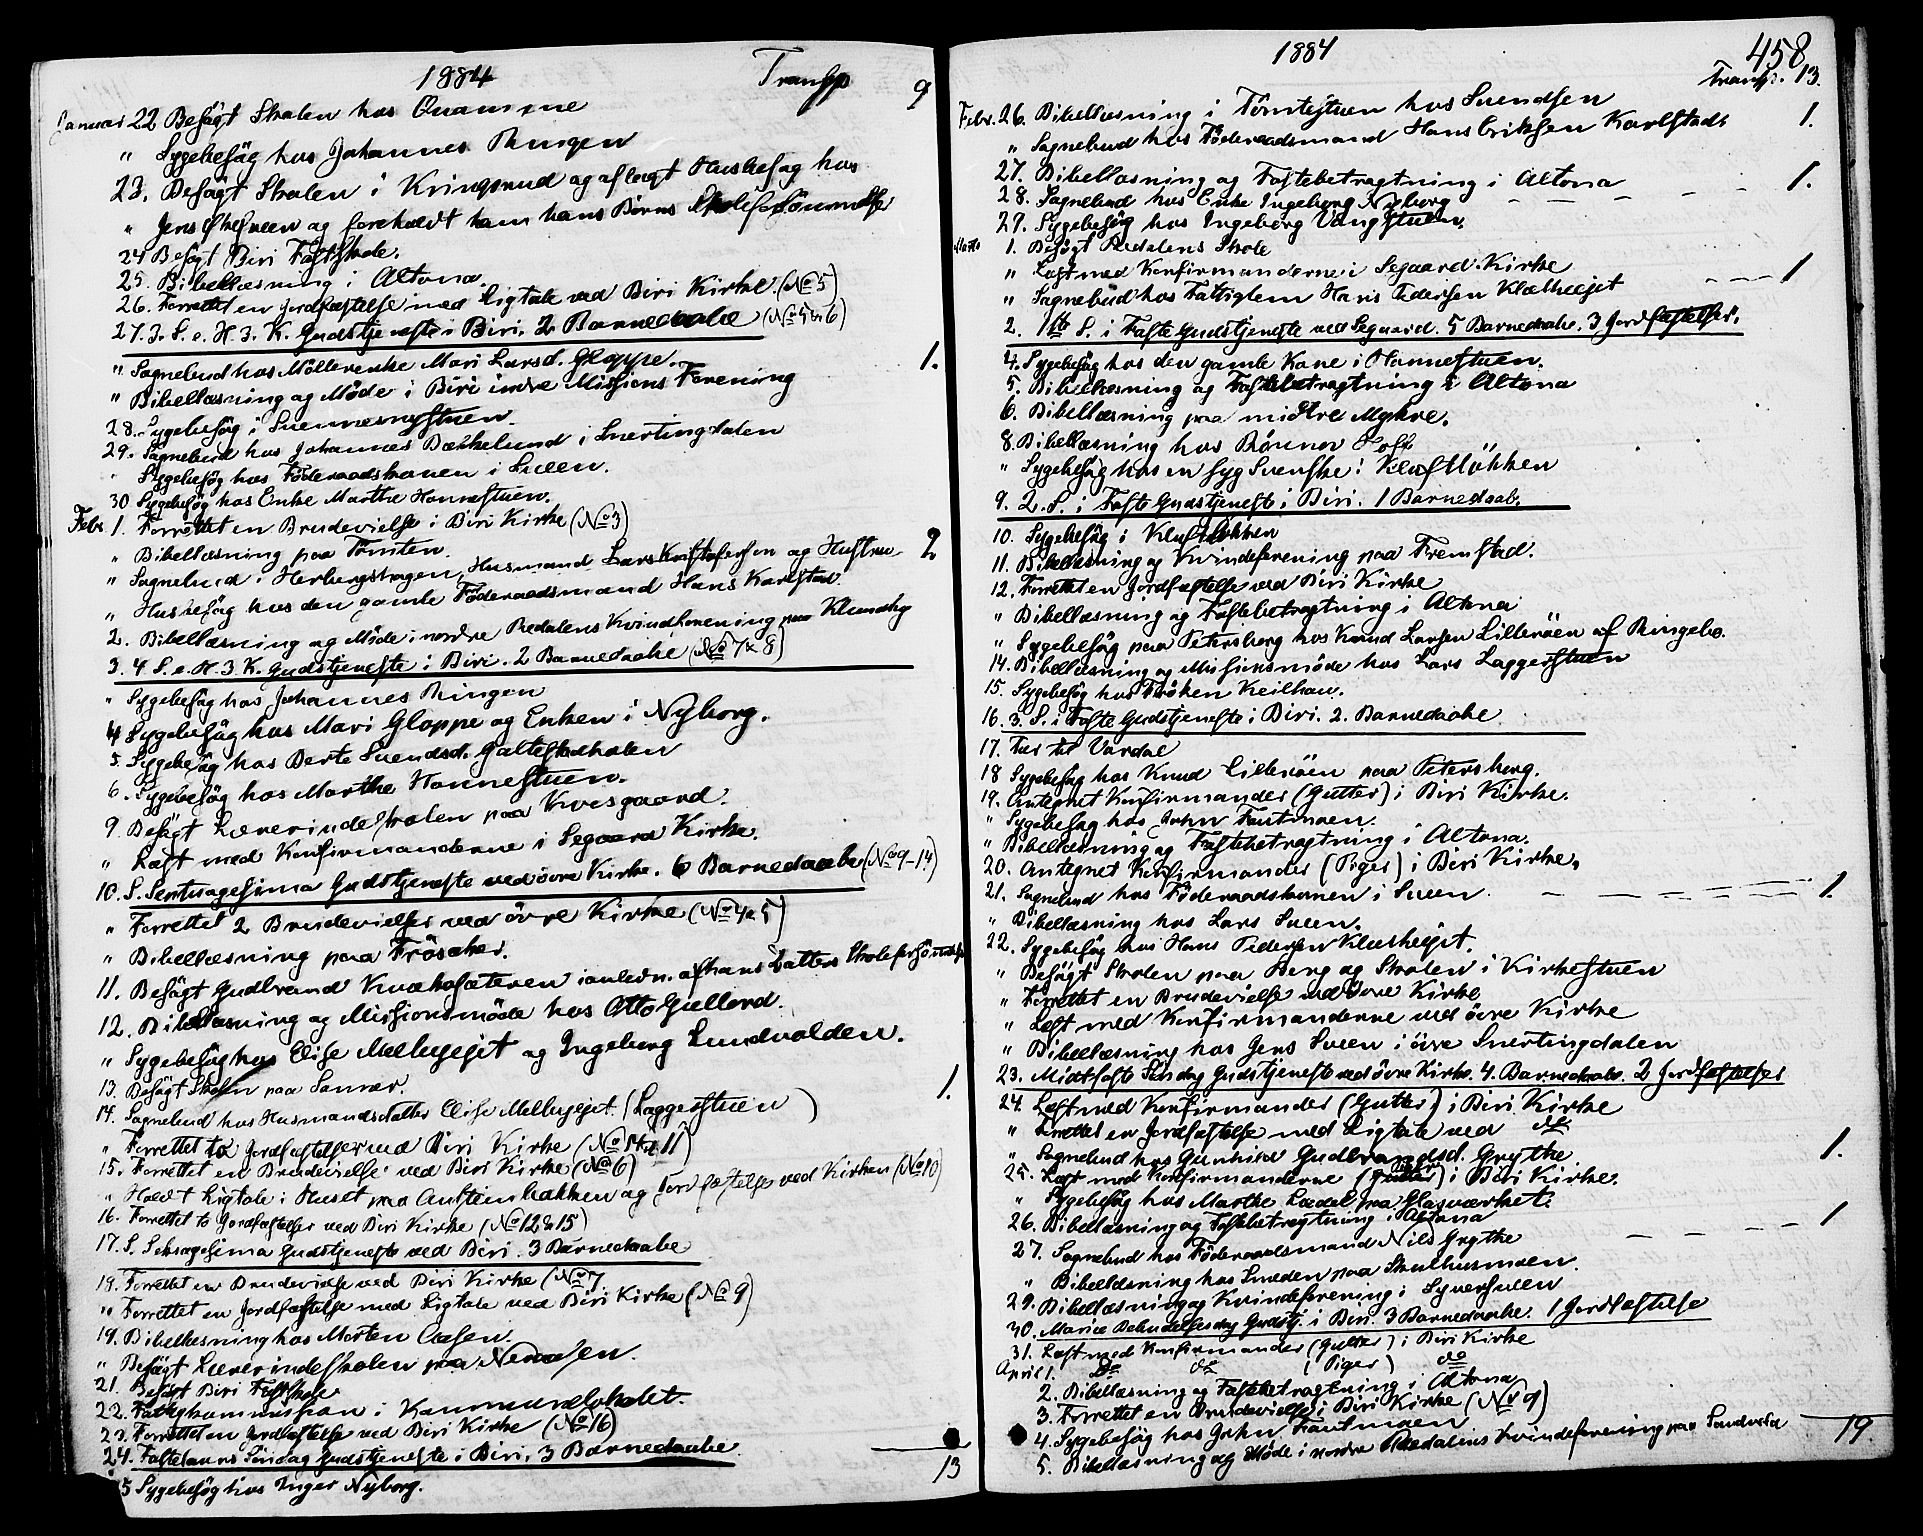 1884 Transp. 9
Januar 22 Besögt Skolen hos Qvamme
" Sygebesög hos Johannes Ringen
23. Besögt Skolen i Kringsrud og aflagt Husbesög hos
" Jens and foreholdt ham hans Börns Skoleforsömmelse
24 Besögt Biri Fastskole.
25. Bibellæsning i Altona.
26. Forrettet en Jordfæstelse med Ligtale ved Biri Kirke. (No 5)
27. 3. S. e. H. 3. K. Gudstjeneste i Biri. 2 Barnedaabe (No 5 & 6)
" Sognebud hos Möllerenke Mari Larsd. Gloppe. 1.
" Bibellæsning og Möde i Biri indre Missions Forening
28. Sygebesög i Svennesnystuen.
29. Sognebud hos Johannes Bækkelund i Snertingdalen
" Sygebesög hos Föderaadskonen i Sveen.
30 Sygebesög hos Enke Marthe Hannestuen.
Febr. 1. Forrettet en Brudevielse i Biri Kirke (No 3)
" Bibellæsning paa Tömten.
" Sognebud i Herbergshagen, Husmand Lars Kristofersen og Hustru 2
" Husbesög hos den gamle Föderaadsmand Hans Karlstad.
2. Bibellæsning og Möde i nordre Redalens Kvindforening paa Klundby
3. 4 S. e. H. 3 K. Gudstjeneste i Biri. 2 Barnedaabe (No 7 & 8)
" Sygebesög hos Johannes Ringen
4 Sygebesög hos Mari Gloppe og Enken i Nyborg.
5. Sygebesög hos Berte Svendsd. Galtestadhalen
6. Sygebesög hos Marthe Hannestuen.
9. Besögt Lærerindeskolen paa Kvesgaard.
" Læst med Konfirmanderne i Segaard Kirke.
10. S. Septuagesima Gudstjeneste ved övre Kirke. 6 Barnedaabe (No 9-14)
" Forrettet 2 Brudevielser ved övre Kirke (No 4 & 5)
" Bibellæsning paa Frösaker.
11. Besögt Gudbrand Knækesæteren i anledn. af hans Datters Skoleforsömmelse
12. Bibellæsning og Missionsmöde hos Otto Gullord.
" Sygebesög hos Elise Melbyejet og Ingeborg Lundvolden.
13. Besögt Skolen paa Sannær.
14. Sognebud hos Husmandsdatter Elise Melbyejet. (Laggerstuen) 1.
" Forrettet to Jordfæstelser ved Biri Kirke (No 14 & 11)
15. Forrettet en Brudevielse ved Biri Kirke (No 6)
" Holdt Ligtale i Huset paa Austinbakken og Jordfæstelse ved Kirken (No 10)
16. Forrettet to Jordfæstelser ved Biri Kirke (No 12 & 15)
17. S. Seksagesima Gudstjeneste ved Biri. 3 Barnedaabe
18. Forrettet en Brudevielse ved Biri Kirke (No 7
" Forrettet en Jordfæstelse med Ligtale ved Biri Kirke (No 9)
19. Bibellæsning hos Morten Aasen.
" Besögt Lærerindeskolen paa
21. Besögt Biri Fastskole
22. Fattigkommission i Kommunelokalet.
23. Forrettet en Jordfæstelse ved Biri Kirke (No 16)
24. Fastelavns Söndag Gudstjeneste i Biri. 3 Barnedaabe.
5 Sygebesög hos Inger Nyborg. 13
1884 458
Transp. 13.
Febr. 26. Bibellæsning i Tömtestuen hos Svendsen
" Sognebud hos Föderaadsmand Hans Eriksen Karlstad. 1.
27. Bibellæsning og Fastebetragtning i Altona
28. Sognebud hos Enke Ingeborg Nyborg 1.
29. Sygebesög hos Ingeborg Vangstuen.
Marts 1. Besögt Redalens Skole
" Læst med Konfirmanderne i Segaard Kirke
" Sognebud hos Fattiglem Hans Pedersen Klæthejet 1
2. 1ste S. i Faste Gudstjeneste ved Segaard. 5 Barnedaabe. 3 Jordfæstelser.
4. Sygebesög hos den gamle Kone i Hannestuen.
5. Bibellæsning og Fastebetragtning i Altona
6. Bibellæsning paa midtre Myhre.
8. Bibellæsning hos Rönnor Hoff
" Sygebesög hos en syg Svenske i Klæstlökken
9. 2. S. i Faste Gudstjeneste i Biri. 1 Barnedaab.
10. Sygebesög i Klæstlökken
11. Bibellæsning og Kvindeforening paa Fremstad.
12. Forrettet en Jordfæstelse ved Biri Kirke
" Bibellæsning og Fastebetragtning i Altona
" Sygebesög paa Petersborg hos Knud Larsen Lilleröen af Ringebo.
14. Bibellæsning og Missionsmöde hos Lars Laggerstuen
15. Sygebesög hos Fröken Keilhau.
16. 3. S. i Faste Gudstjeneste i Biri. 2. Barnedaabe
17. Tur til Vardal
18 Sygebesög hos Knud Lilleröen paa Petersborg.
19. Antegnet Konfirmander (Gutter) i Biri Kirke.
" Sygebesög hos John Faustmoen.
" Bibellæsning og Fastebetragtning i Altona.
20. Antegnet Konfirmander (Piger) i Biri Kirke.
21. Sognebud hos Föderaadskonen i Sveen. 1.
" Bibellæsning hos Lars Sveen.
22. Sygebesög hos Hans Pedersen Klæthejet.
" Besögt Skolen paa Berg og Skolen i Kirkestuen
" Forrettet en Brudevielse ved övre Kirke
" Læst med Konfirmanderne ved övre Kirke
" Bibellæsning hos Jens Sveen i övre Snertingdalen
23. Midtfaste Söndag Gudstjeneste ved övre Kirke. 4. Barnedaabe. 2 Jordfæstelser
24. Læst med Konfirmander (Gutter) i Biri Kirke
" Forrettet en Jordfæstelse med Ligtale ved do
" Sognebud hos Gunhild Gudbrandsd. Grythe 1.
25. Læst med Konfirmanderne (Piger) i Biri Kirke.
" Sygebesög hos Marthe Lædel paa Glasværket.
26. Bibellæsning og Fastebetragtning i Altona
27. Sognebud hos Föderaadsmand Nils Grythe 1
" Bibellæsning hos Smeden paa Skulhusmoen.
29. Bibellæsning og Kvindeforening i Syversveen
30. Mariæ Bebudelsesdag Gudstj. i Biri. 3 Barnedaabe. 1 Jordfæstelse
31. Læst med Konfirmander (Gutter) i Biri Kirke
April 1. Do do (Piger) do
2. Bibellæsning og Fastebetragtning i Altona
3. Forrettet en Brudevielse i Biri Kirke (No 9)
4. Sygebesög hos John Faustmoen
5. Bibellæsning og Möde i nordre Redalens Kvindeforening paa Sandvold 19